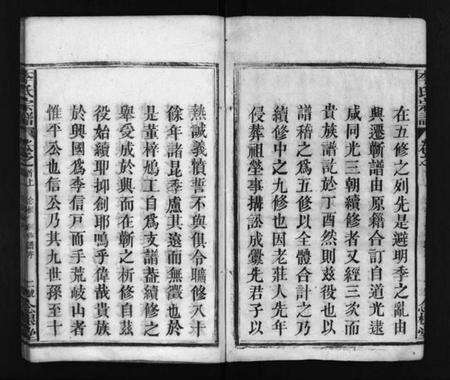 在五修之列先是避明季之亂由
興遷蘄譜由原籍合訂自道光逮
咸同光三朝續修者又經三次而
貴族譜訖於丁酉然則茲役也以
譜稽之爲五修以全體合計之乃
續修中之九修也因老莊人先年
侵葬祖塋事搆訟成釁先君子以
熱誠義憤誓不與俱令曠修八十
餘年諸昆季慮其遠而無徵也於
是董梓鳩工自爲支譜蓋續修之
舉受成於興而在蘄之析修自茲
役始續耶抑創耶嗚乎偉哉貴族
於興國爲李信戸而手荒岐山者
惟平公也信公乃其九世孫至十
李氏宗譜